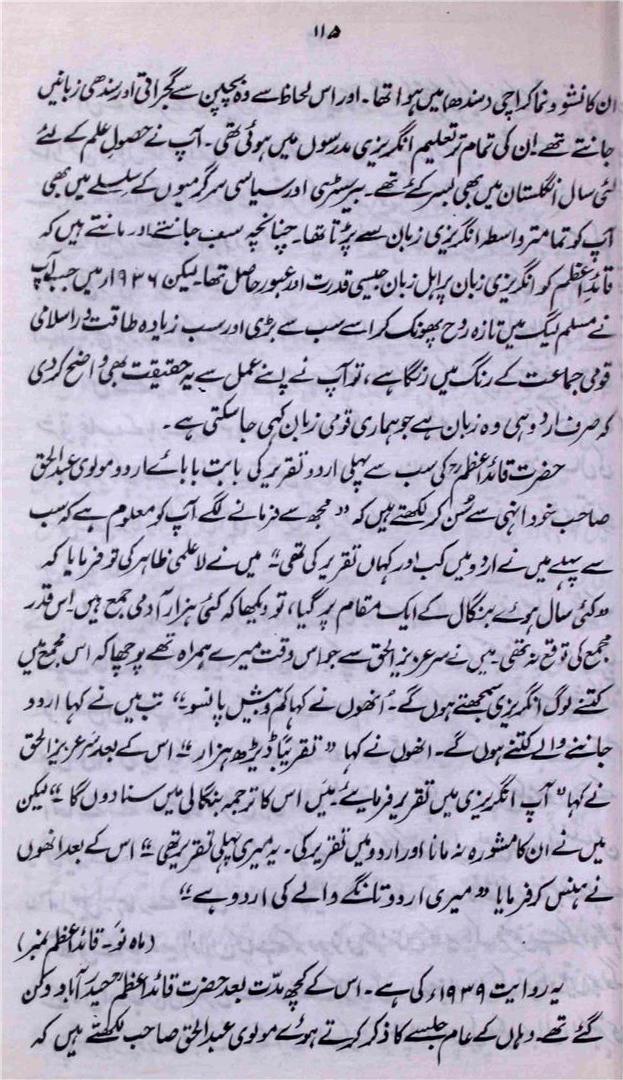 ۱۱۵
ان کا نشو و نما کراچی (سندھ) میں ہوا تھا۔ اور اس لحاظ سے وہ بچپن سے گجراتی اور سندھی زبانیں
جانتے تھے۔ ان کی تمام تر تعلیم انگریزی مدرسوں میں ہوئی تھی۔ آپ نے حصولِ علم کے لئے
کئی سال انگلستان میں بھی بسر کئے تھے۔ بیرسٹری اور سیاسی سرگرمیوں کے سلسلے میں بھی
آپ کو تمام تر واسطہ انگریزی زبان سے پڑتا تھا۔ چنانچہ سب جانتے اور مانتے ہیں کہ
قائدِ اعظم کو انگریزی زبان پر اہل زبان جیسی قدرت اور عبور حاصل تھا۔ لیکن ۱۹۳۶ء میں جب آپ
نے مسلم لیگ میں تازہ روح پھونک کر اسے سب سے بڑی اور سب زیادہ طاقت ور اسلامی
قومی جماعت کے رنگ میں رنگا ہے، تو آپ نے اپنے عمل سے یہ حقیقت بھی واضح کر دی
کہ صرف اردو ہی وہ زبان ہے جو ہماری قومی زبان کہی جا سکتی ہے۔
حضرت قائد اعظمؒ کی سب سے پہلی اردو تقریر کی بابت بابائے اردو مولوی عبدالحق
صاحب خود انہی سے سُن کر لکھتے ہیں کہ “مجھ سے فرمانے لگے آپ کو معلوم ہے کہ سب
سے پہلے میں نے اردو میں کب اور کہاں تقریر کی تھی” میں نے لاعلمی ظاہر کی تو فرمایا کہ
“کئی سال ہوئے بنگال کے ایک مقام پر گیا، تو دیکھا کہ کئی ہزار آدمی جمع ہیں اس قدر
مجمع کی توقع نہ تھی۔ میں نے سر عزیز الحق سے جو اس وقت میرے ہمراہ تھے پوچھا کہ اس مجمع میں
کتنے لوگ انگریزی سمجھتے ہوں گے۔ انھوں نے کہا کم و بیش پانسو”، تب میں نے کہا اردو
جاننے والے کتنے ہوں گے۔ انھوں نے کہا “تقریباً ڈیڑھ ہزار”۔ اس کے بعد سر عزیز الحق
نے کہا “آپ انگریزی میں تقریر فرمایئے۔ میں اس کا ترجمہ بنگالی میں سنا دوں گا”۔ لیکن
میں نے ان کا مشورہ نہ مانا اور اردو میں تقریر کی۔ یہ میری پہلی تقریر تھی”۔ اس کے بعد انھوں
نے ہنس کر فرمایا “میری اردو تانگے والے کی اردو ہے”
(ماہ نو۔ قائد اعظم نمبر)
یہ روایت ۱۹۳۹ء کی ہے۔ اس کے کچھ مدت بعد حضرت قائد اعظمؒ حیدرآباد دکن
گئے تھے۔ وہاں کے عام جلسے کا ذکر کرتے ہوئے مولوی عبدالحق صاحب لکھتے ہیں کہ